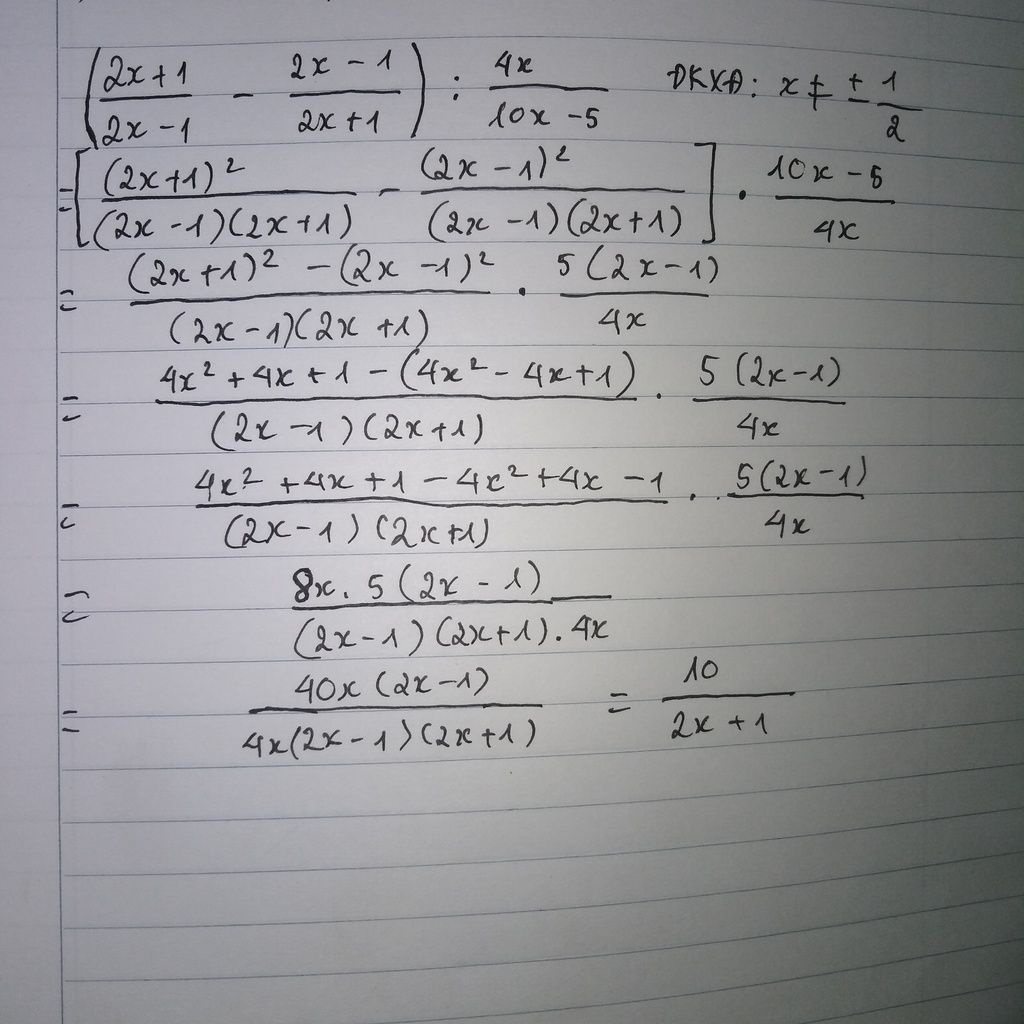 (2x+1/2x-1 - 2x-1/2x+1) : 4x/10x-5 ĐKXĐ: x ≠ ± 1/2
= [(2x+1)²/(2x-1)(2x+1) - (2x-1)²/(2x-1)(2x+1)] . 10x-5/4x
= (2x+1)² - (2x-1)²/(2x-1)(2x+1) . 5(2x-1)/4x
= 4x² + 4x + 1 - (4x² - 4x + 1)/(2x-1)(2x+1) . 5(2x-1)/4x
= 4x² + 4x + 1 - 4x² + 4x - 1/(2x-1)(2x+1) . 5(2x-1)/4x
= 8x . 5(2x-1)/(2x-1)(2x+1) . 4x
= 40x(2x-1)/4x(2x-1)(2x+1) = 10/2x+1